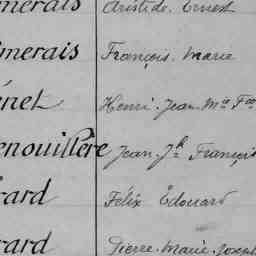 merais Aristide. Ernest
merais François. Marie
enet Henri. Jean. Mie Fse
enouillère Jean. Jh François
rard Félix Édouard
rard Pierre. Marie. Joseph